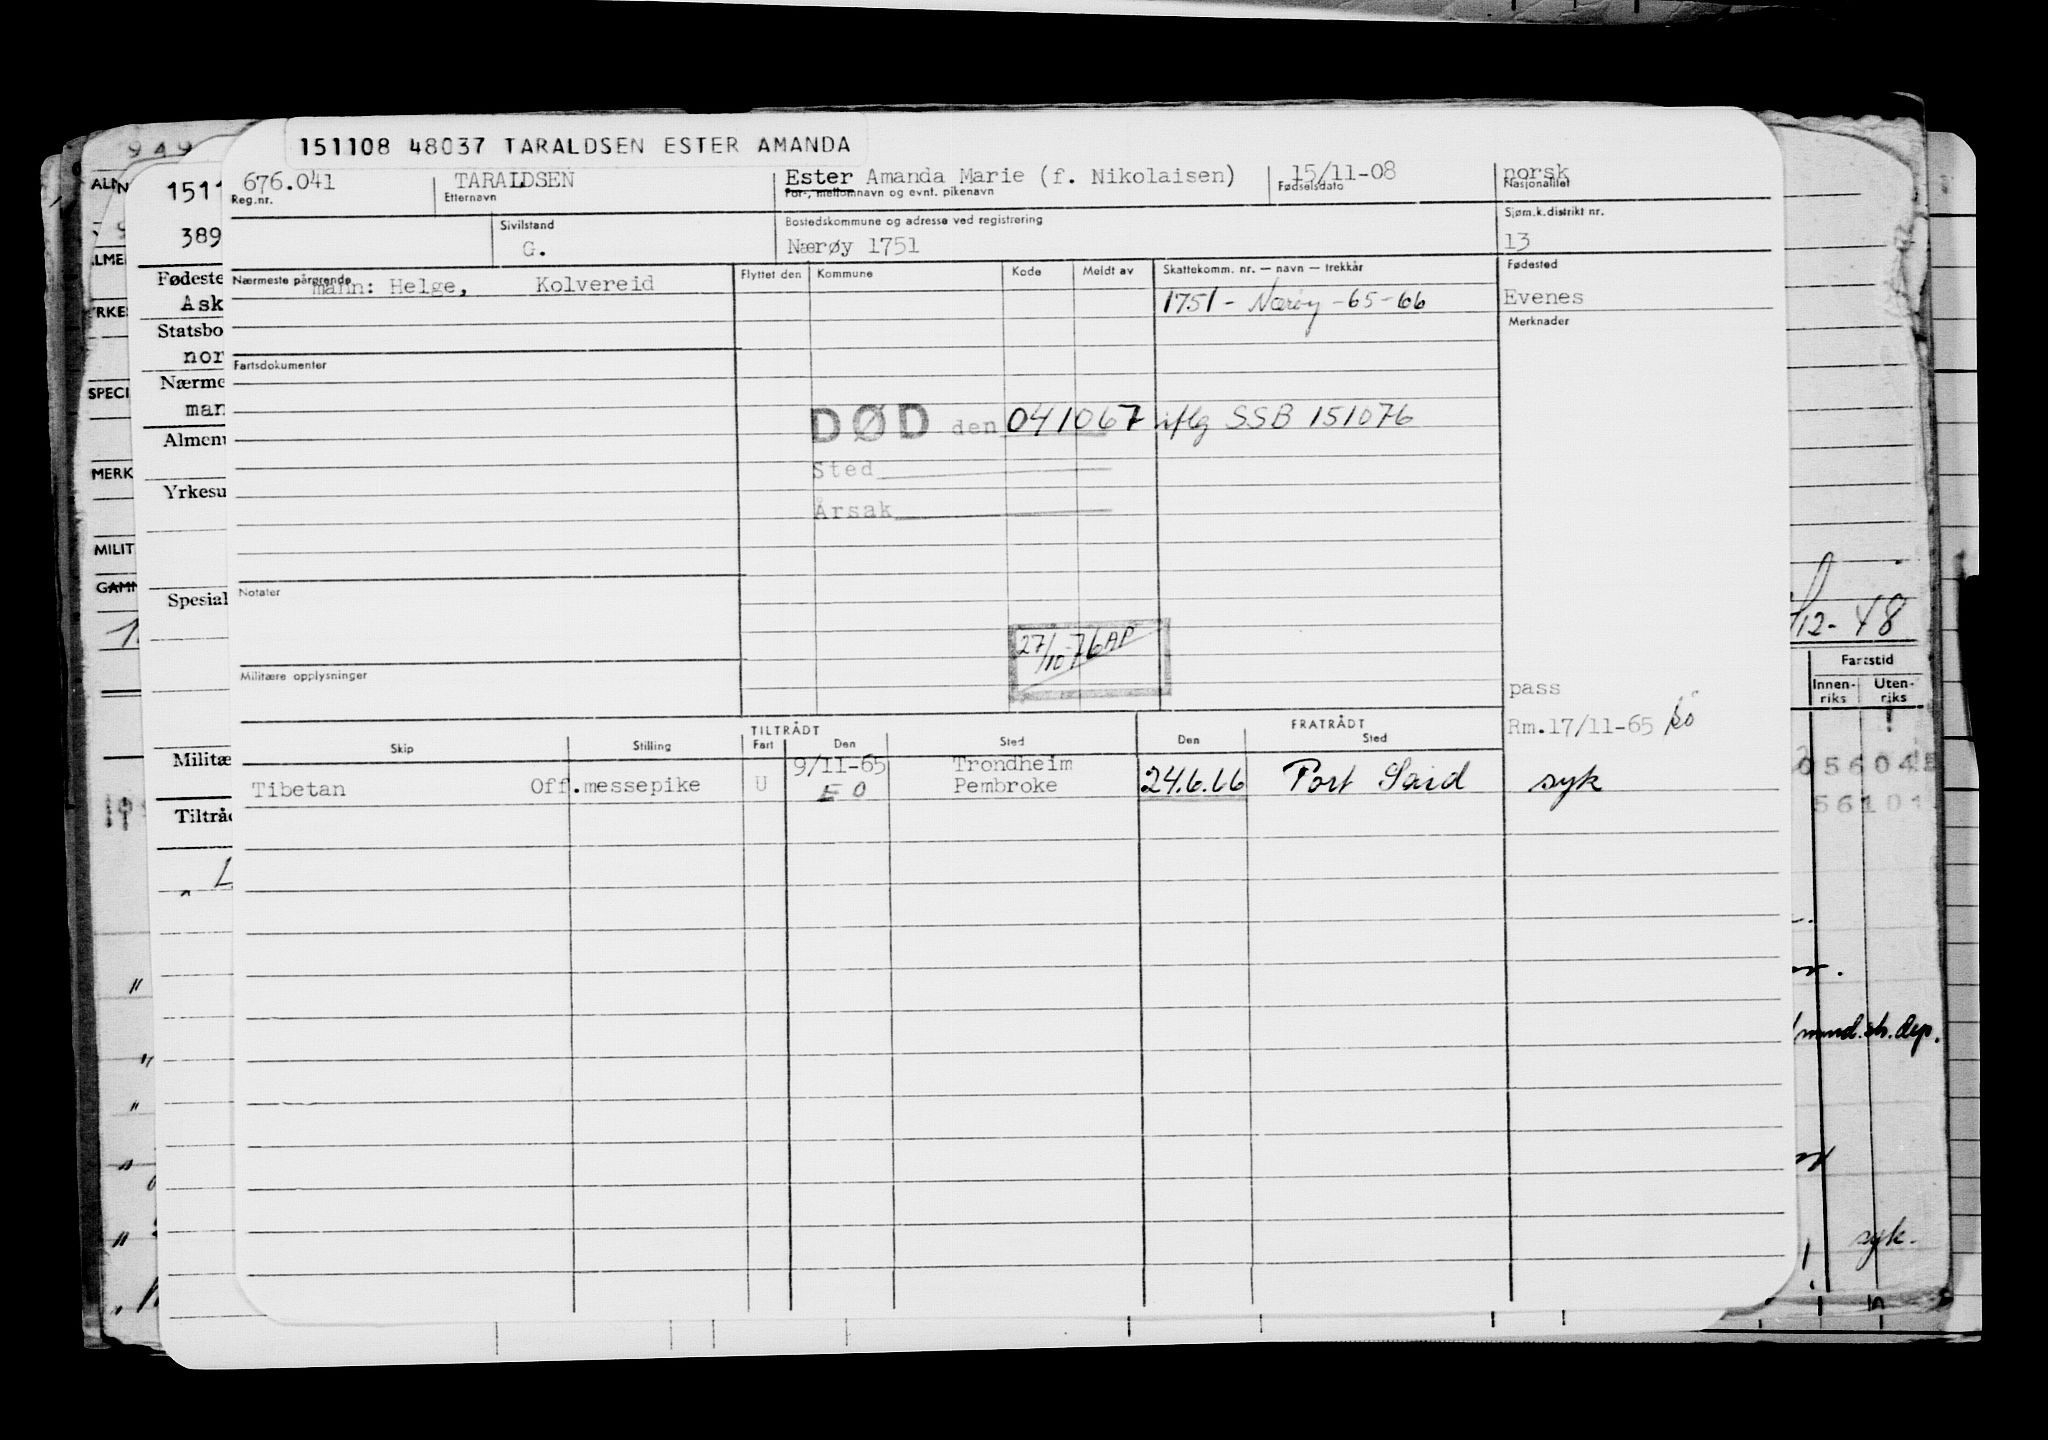 151108 48037 TARALDSEN ESTER AMANDA
676.041 TARALDSEN Ester Amanda Marie (f. Nikolaisen) 15/11-08 norsk
Reg.nr. Etternavn For-, mellomnavn og evnt. pikenavn Fødselsdato Nasjonalitet
Sivilstand Bostedskommune og adresse ved registrering Sjøm.k.distrikt nr.
G. Nærøy 1751 13
Nærmeste pårørende Flyttet den Kommune Kode Meldt av Skattekomm. nr. — navn — trekkår Fødested
mann: Helge, Kolvereid 1751 - Nærøy - 65-66 Evenes
Merknader
Fartsdokumenter
DØD den 041067 iflg SSB 151076
Sted
Årsak
Notater
27/10-76 AP
Militære opplysninger
pass
Rm.17/11-65
TILTRÅDT FRATRÅDT
Skip Stilling Fart Den Sted Den Sted
9/11-65 Trondheim
Tibetan Off.messepike U E O Pembroke 24.6.66 Port Said syk
949
1511
389
Fødeste
Ask
Statsbo
nor
Nærme
man
Almen
Yrkesu
Spesial
Militæ
Tiltråd
SPECI
MERK
MILIT
GAMN
/12-48
Fartstid
Innen-riks Uten-riks
05604
56101
mnd. sh. dep.
syk.